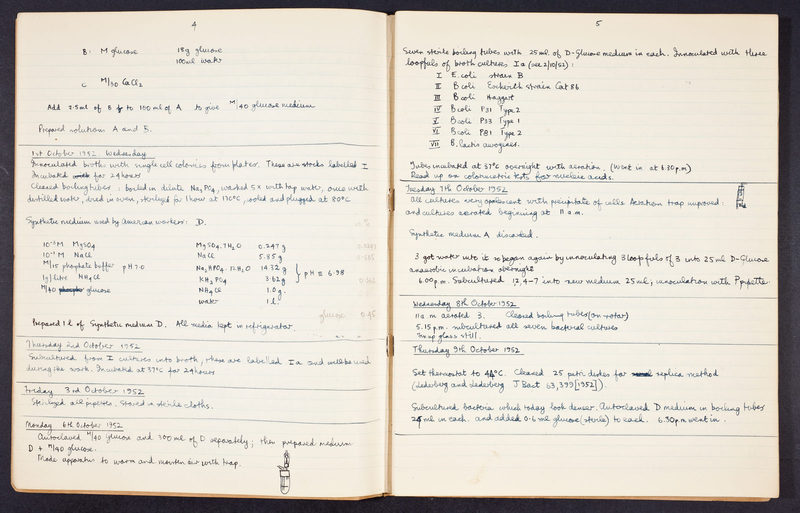 4
B. M glucose 18g glucose
100ml water
C M/30 CaCl2
Add 2.5ml of B to 100ml of A to give M/40 glucose medium
Prepared solutions A and B.
1st October 1952 Wednesday
Innoculated broths with single cell colonies from plates. These are stocks labelled I
Incubated for 24 hours
Cleaned boiling tubes: boiled in dilute Na3PO4, washed 5x with tap water, once with
distilled water, dried in oven, sterilized for 1 hour at 170°C, cooled and plugged at 80°C
Synthetic medium used by American workers: D.
10-3M MgSO4 MgSO4.7H2O 0.247g
10-1M NaCl NaCl 5.85g
M/15 phosphate buffer pH 7.0 Na2HPO4.12H2O 14.32g
1g/litre NH4Cl KH2PO4 3.62g pH = 6.98
M/40 glucose NH4Cl 1.0g
water 1 l.
glucose 0.45
Prepared 1 l of Synthetic medium D. All media kept in refrigerator.
Thursday 2nd October 1952
Subcultured from I cultures into broth, these are labelled Ia and will be used
during the work. Incubated at 37°C for 24 hours
Friday 3rd October 1952
Sterilized all pipettes. Stored in sterile cloths.
Monday 6th October 1952
Autoclaved M/40 glucose and 200 ml of D separately; then prepared medium
D + M/40 glucose.
Made apparatus to warm and moisten air with trap.
5
Seven sterile boiling tubes with 25ml of D-Glucose medium in each. Innoculated with three
loopfuls of broth cultures Ia (see 2/10/52):
I E. coli strain B
II B coli Escherich strain Cat 86
III B coli Haggart
IV B coli P31 Type 2
V B coli P33 Type 1
VI B coli P81 Type 2
VII B. lactis aerogenes.
Tubes incubated at 37°C overnight with aeration. (Went in at 6.30 p.m)
Read up on colorimetric tests for nucleic acids.
Tuesday 7th October 1952
All cultures very opalescent with precipitate of cells. Aeration trap improved:
and cultures aerated beginning at 11 a.m.
Synthetic medium A discarded.
3 got water into it so began again by innoculating 3 loopfuls of 3 into 25 ml D-Glucose
anaerobic incubation overnight
6.00 p.m. Subcultured 1,2, 4-7 into new medium 25 ml; innoculation with Ppipette
Wednesday 8th October 1952
11 a.m aerated 3. Cleaned boiling tubes
5.15 p.m. subcultured all seven bacterial cultures
glass still.
Thursday 9th October 1952
Set thermostat to 44°C. Cleaned 25 petri dishes for replica method
(Lederberg and Lederberg J Bact 63, 399 [1952]).
Subcultured bacteria which today look denser. Autoclaved D medium in boiling tubes
24 ml in each. and added 0.6 ml glucose (sterile) to each. 6.30 p.m went in.